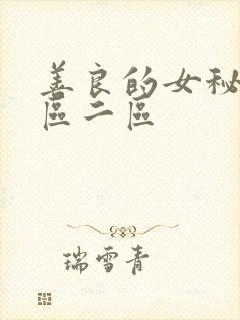 善良的女秘
區二區
瑞雪青